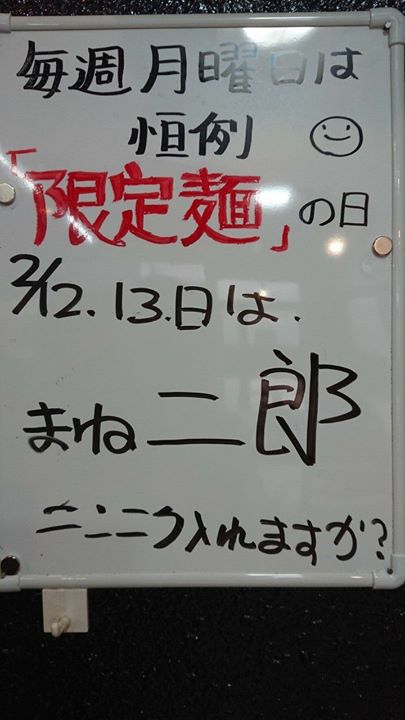 毎週月曜日は
恒例
「限定麺」の日
2/12.13.日は.
まね二郎
ニンニク入れますか?